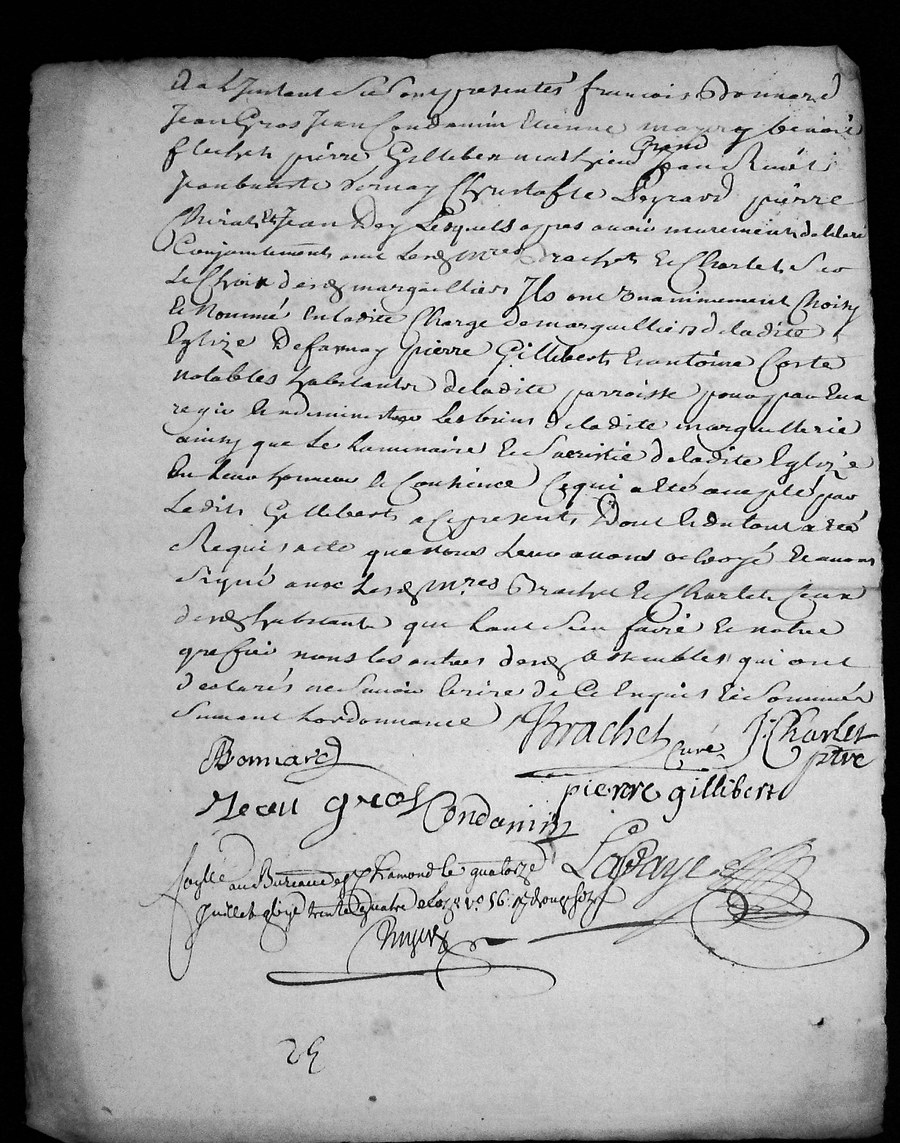 A a L'Instant se sont presentés francois Bonnard
Jean Gros Jean Condamin Etienne benoit
flechet pierre Gillibert mathieu grand
Jean baptiste Vernay Christofle Peyrard pierre
Chirat et Jean Lesquels apres avoir murement deliberé
Conjointement avec lesds mres Brachet et Charlet Sur
Le Choix desds marguilliers Ils ont Unanimement Choisy
et Nommé En ladite Charge de marguilliers de ladite
Eglize De farnay pierre Gillibert Et antoine Coste
notables habitants de ladite parroisse pour par Eux
regir et administrer Les biens de ladite marguillerie
ainsy que Le Luminaire et Sacristie de ladite Eglize
En leur honneur et Consience Ce qui a eté accepté par
Ledit Gillibert a Ce present Dont Et du tout a eté
Requis acte que nous Leur avons octroyé Et avons
Signé avec Lesds mres Brachet et Charlet Ceux
desds habitants que l'ont Sceu faire et notre
greffier non les autres desds assemblés qui ont
declarés ne Savoir Ecrire de Ce Enquis et Sommés
Suivant Lordonnance
Brachet Curé J. Charlet ptre
Bonnard
pierre gillibert
Jean gros Condamin
Lafaye
au Bureau de St Chamond le quatorze
Juillet trente quatre
29